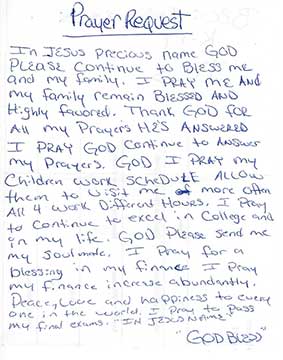 Prayer Request
In JESUS precious name GOD
PLEASE continue to Bless me
and my family. I PRAY ME AND
my family remain Blessed AND
Highly favored. Thank GOD FOR
All my Prayers HE'S ANSWERED
I PRAY GOD continue to ANSWER
my Prayers. GOD I PRAY my
Children work schedule ALLOW
them to visit me more often
All 4 work Different Hours. I Pray
to continue to excel in College and
in my life. GOD Please send me
my soulmate. I Pray for a
blessing in my finance I Pray
my finance increase abundantly.
Peace, Love and happiness to every
one in the world. I Pray to Pass
my final exams. "IN JESUS NAME"
"GOD BLESS"